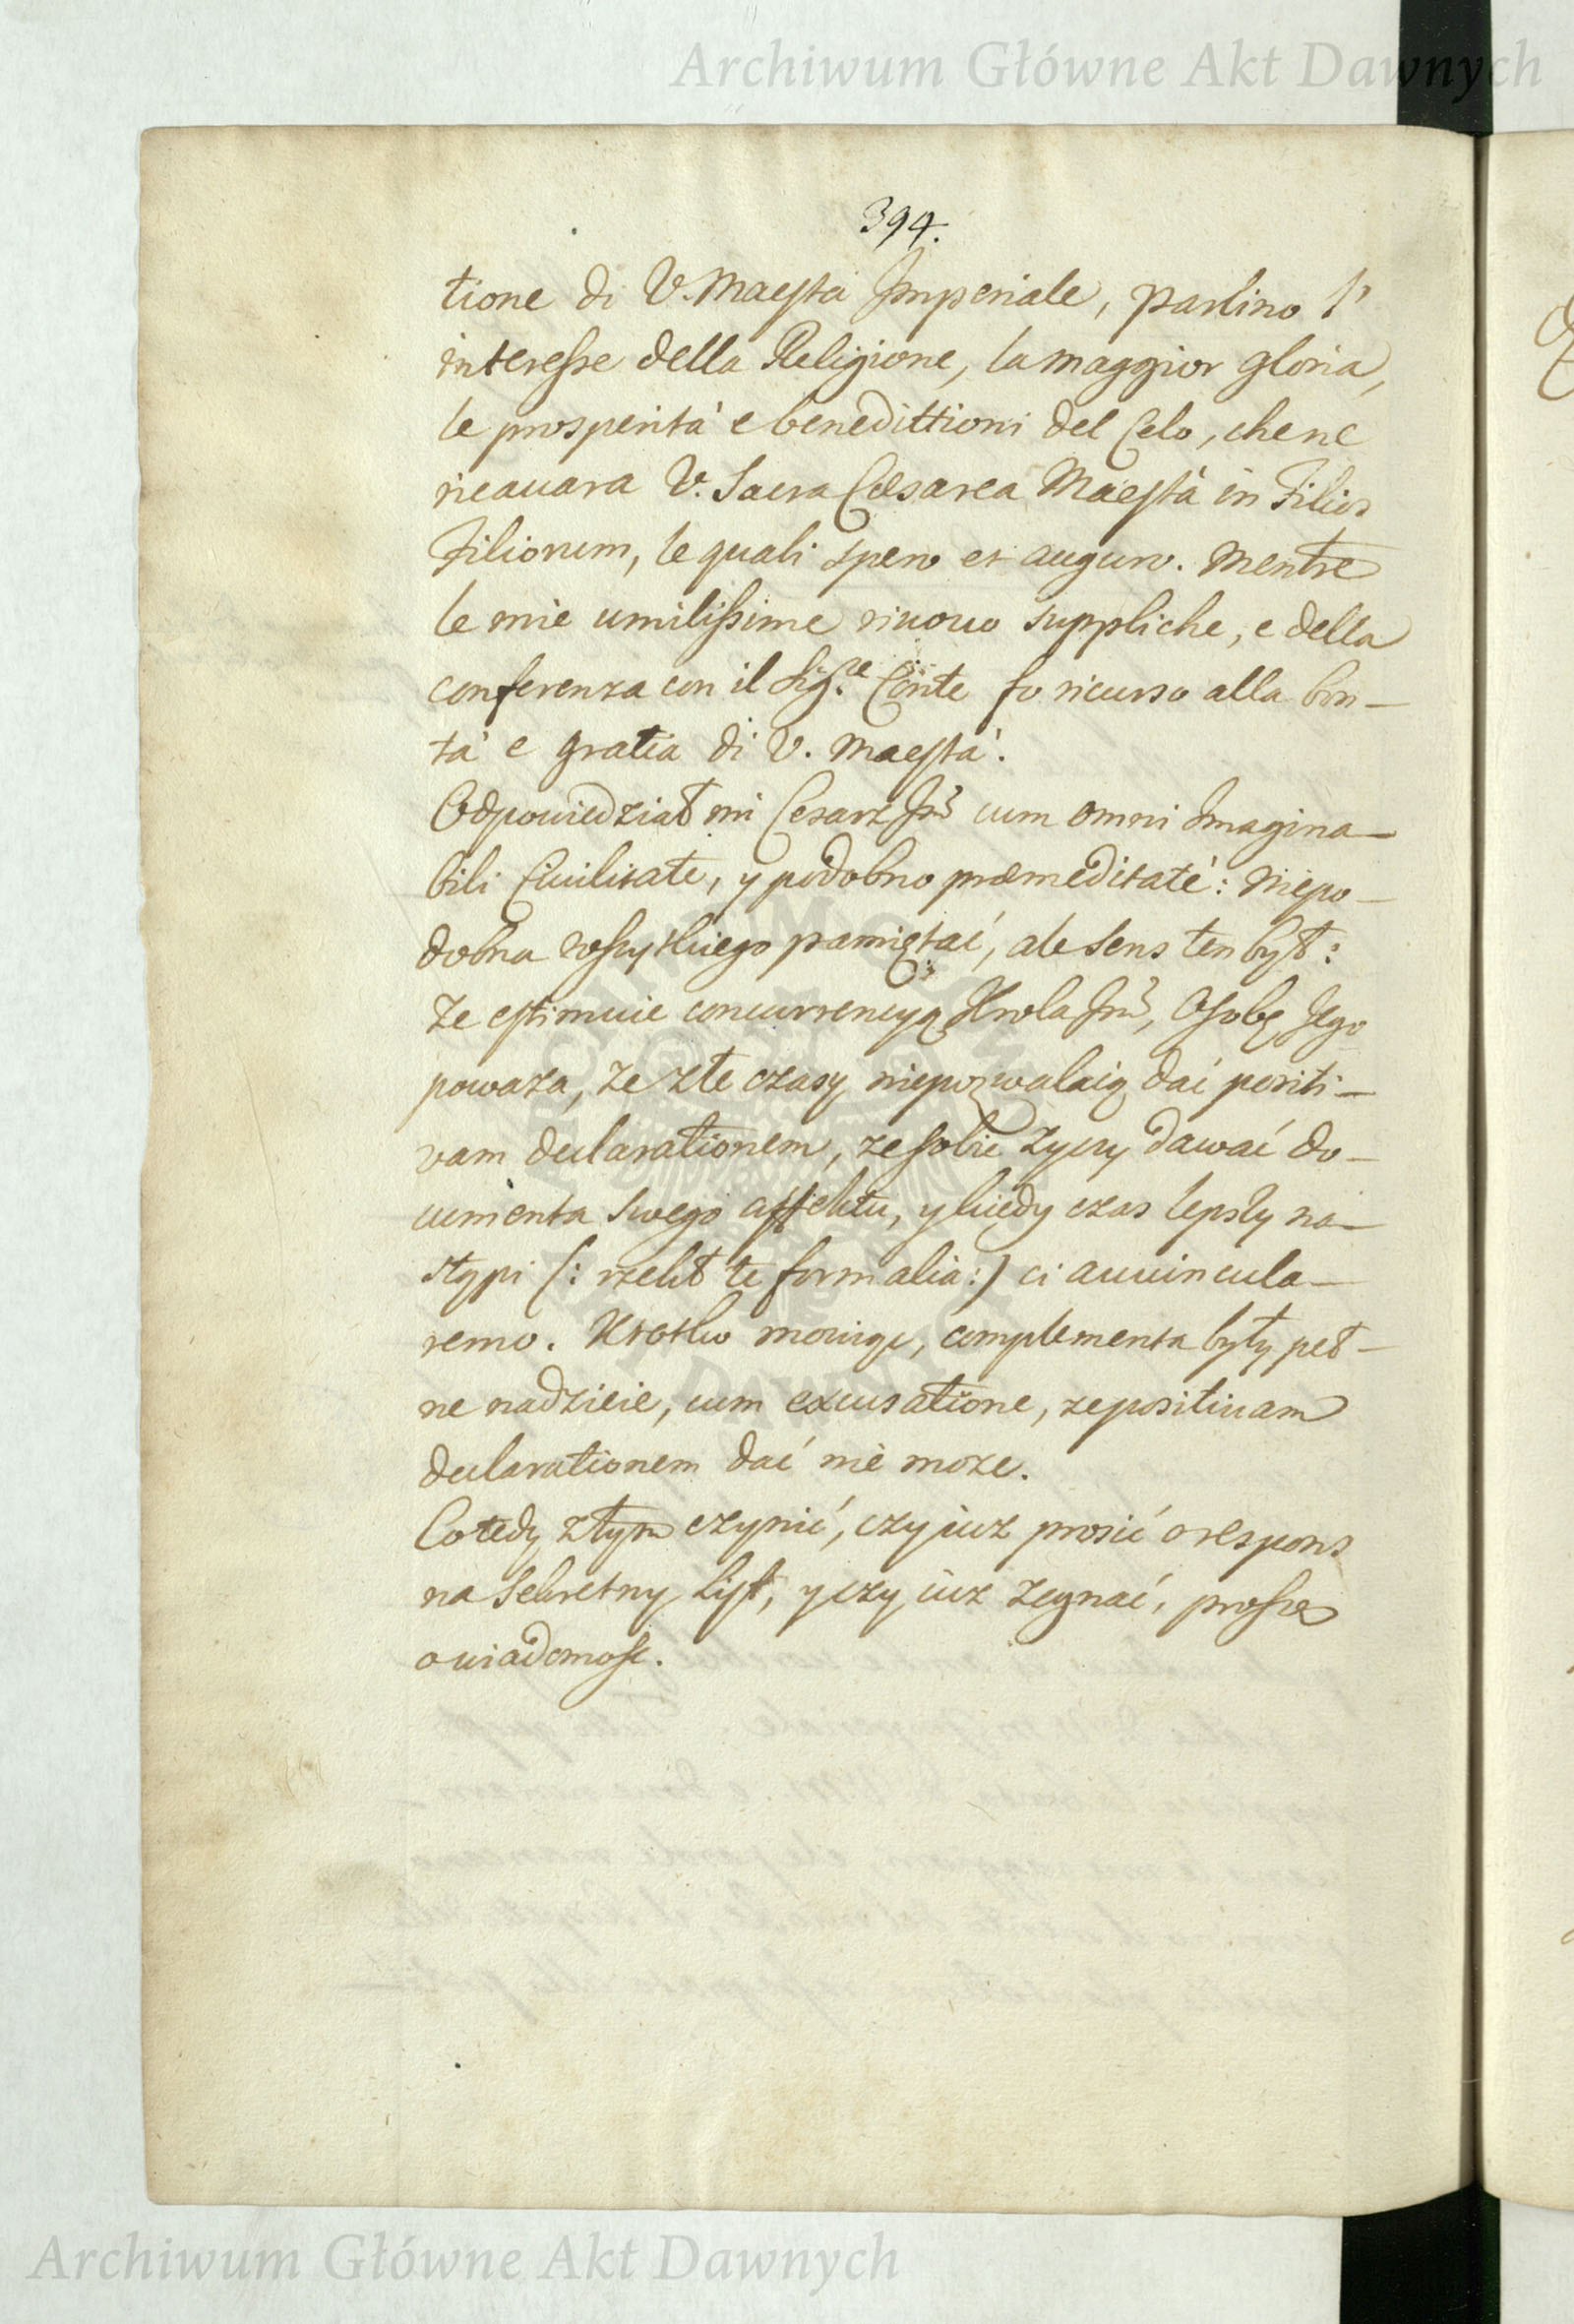 Archiwum Główne Akt Dawnych
394.
tione di V. Maesta Imperiale, parlino l'
interesse della Religione, la maggior gloria,
le prosperità e benedittioni del Celo, che ne
ricauara V. Sacra Cæsarea Maestà in Filios
Filiorum, le quali spero et auguro. Mentre
le mie umilissime rinouo suppliche, e della
conferenza con il Sig.re Conte fo ricurso alla bon-
tà e gratia di V. Maestà.
Odpowiedział mi Cesarz Jmć cum omni Imagina-
bili Civilitate, y podobno præmeditatè: Niepo-
dobna wszytkiego pamiętać, ale sens ten był:
Ze estimuie concurrencyą Krola Jmć, Osobę Jego
powaza, ze złe czasy niepozwalaią dać positi-
vam declarationem, ze sobie zyczy dawać do-
cumenta swego affektu, y kiedy czas lepszy na-
stąpi (: rzekł te formalia :) ci auuincula-
remo. Krotko mowiąc, complementa były peł-
ne nadzieie, cum excusatione, ze positiuam
declarationem dać nie moze.
Co tedy z tym czynić, czy iuz prosić o respons
na Sekretny List, y czy iuz zegnać, proszę
o wiadomość.
Archiwum Główne Akt Dawnych